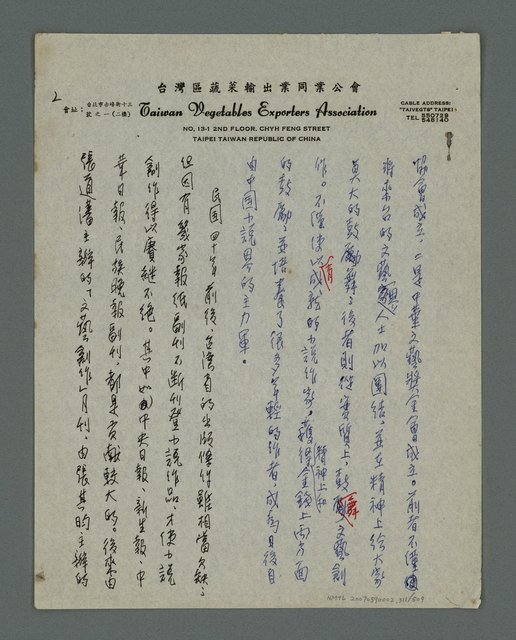 2
台灣區蔬菜輸出業同業公會
會址：台北市赤峰街十三號之一(二樓)
Taiwan Vegetables Exporters Association
CABLE ADDRESS: "TAIVEGTS" TAIPEI
TEL 550729 548740
NO, 13-1 2ND FLOOR, CHYH FENG STREET
TAIPEI TAIWAN REPUBLIC OF CHINA
協會成立，二是中華文藝獎金會成立。前者不僅
將來台的文藝界人士加以團結，並在精神上給大家
莫大的鼓舞；後者則從實質上，鼓舞文藝創
作。不僅使以有成就的小說作家，獲得精神上和金錢上兩方面
的鼓勵，並培養了很多年輕的作者，成為日後自
由中國小說界的主力軍。
民國四十年前後，台灣省的出版條件雖相當欠缺，
但因有幾家報紙副刊不斷刊登小說作品，才使小說
創作得以賡繼不絕。其中如中央日報、新生報、中
華日報、民族晚報副刊，都是貢獻較大的。後來由
張道藩主辦的「文藝創作」月刊，由張其昀主辦的
NMTL 20070590002 311/509